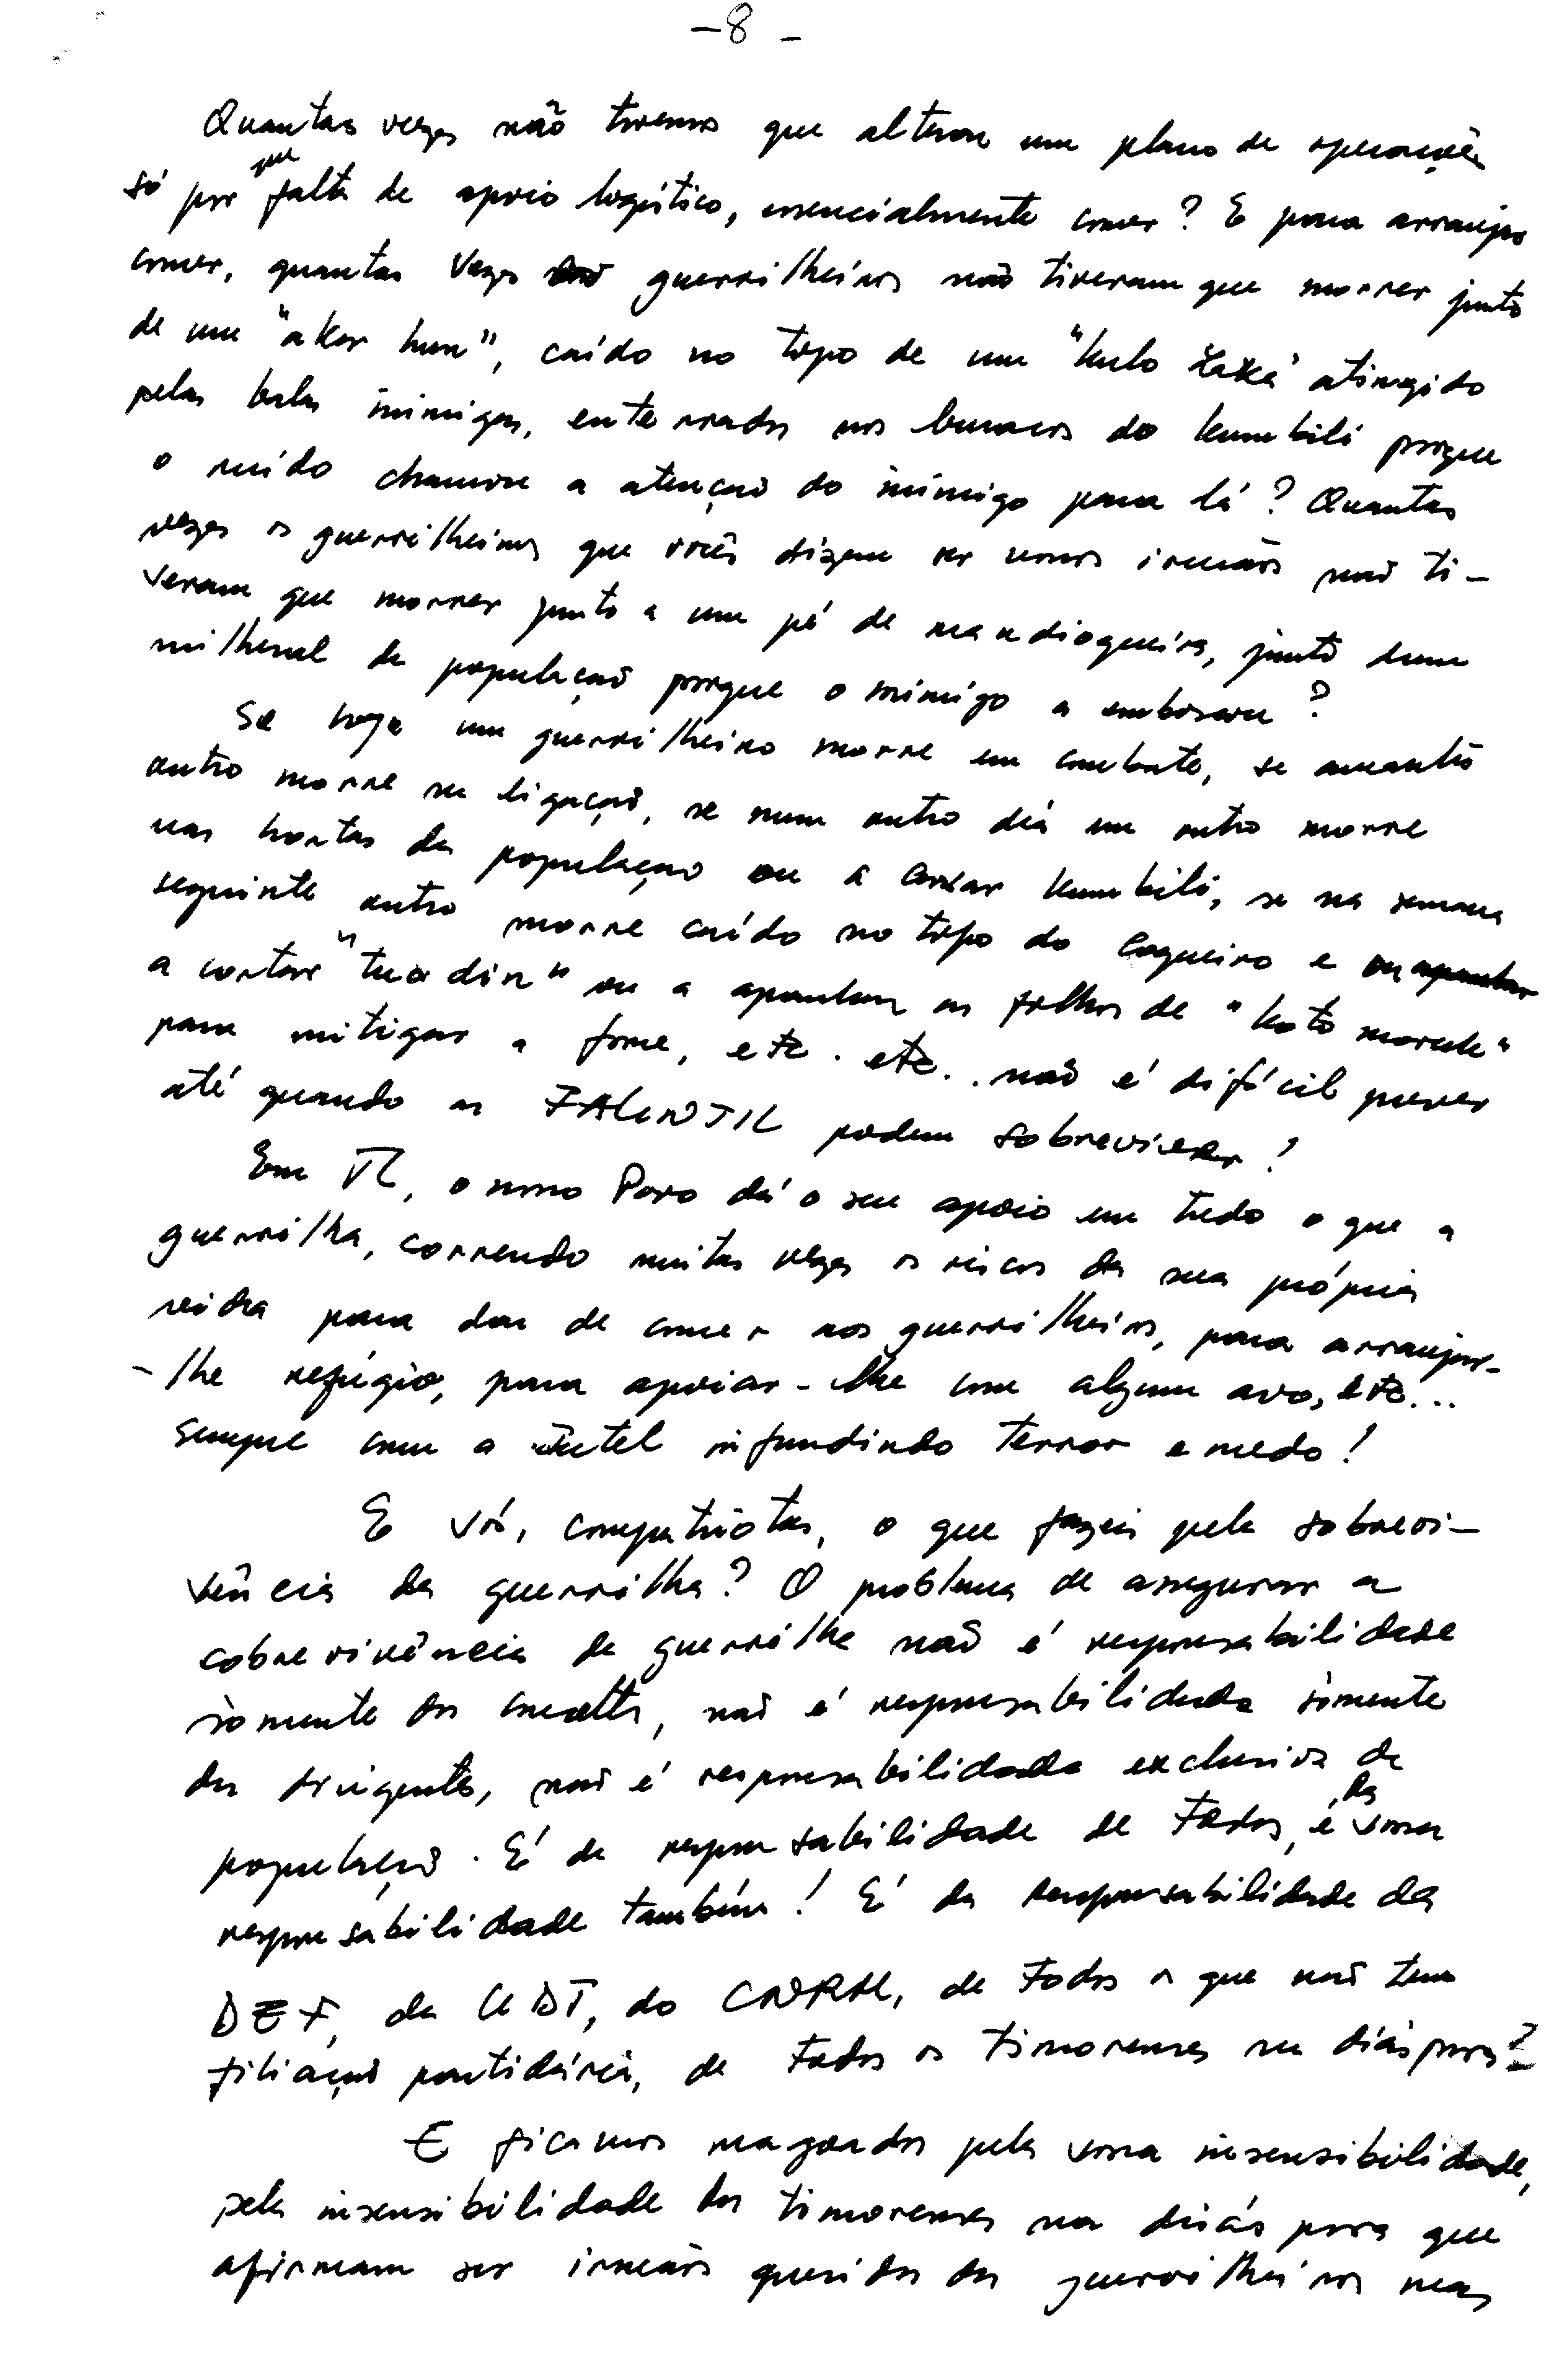 - 8 -
Quantas vezes não tivemos que alterar um plano de operações
só por que falta de apoio logístico, essencialmente comer? E para arranjar
comer, quantas vezes guerrilheiros não tiveram que morrer junto
de um "akar hun", caído no topo de um atingido
pelas balas inimigas, enterrados nos buracos do kumbili porque
o ruído chamou a atenção do inimigo para lá? Quantas
vezes os guerrilheiros que vocês dizem ser vossos irmãos não ti-
veram que morrer junto a um pé de mandioqueira, junto dum
milheral da população porque o inimigo a emboscou?
Se hoje um guerrilheiro morre em combate, se amanhã
outro morre na ligação, se num outro dia um outro morre
nas hortas da população ou a cavar kumbili, se na semana
seguinte outro morre caído no topo do coqueiro e ou
a cortar "tua din" ou a apanhar as folhas de "koto moruk"
para mitigar a fome, etc. etc.. não é difícil prever
até quando as FALINTIL podem sobreviver!
Em TL, o nosso Povo dá o seu apoio em tudo o que a
guerrilha, correndo muitas vezes os riscos da sua própria
vida para dar de comer aos guerrilheiros, para arranjar-
-lhe refúgio, para apoiar-lhe com algum avo, etc...
sempre com a intel infundindo terror e medo!
E vós, compatriotas, o que fazeis pela sobrevi-
vência da guerrilha? O problema de assegurar a
sobrevivência da guerrilha não é responsabilidade
sòmente dos não é responsabilidade sòmente
dos dirigentes, não é responsabilidade exclusiva da
população. É da responsabilidade de todos, é da vossa
responsabilidade também! É da responsabilidade da
DEF, da UDT, do CNRM, de todos os que não tem
filiação partidária, de todos os timorenses na diáspora!
E ficamos magoados pela vossa insensibilidade,
pela insensibilidade dos timorenses na diáspora que
afirmam ser irmãos queridos dos guerrilheiros mas